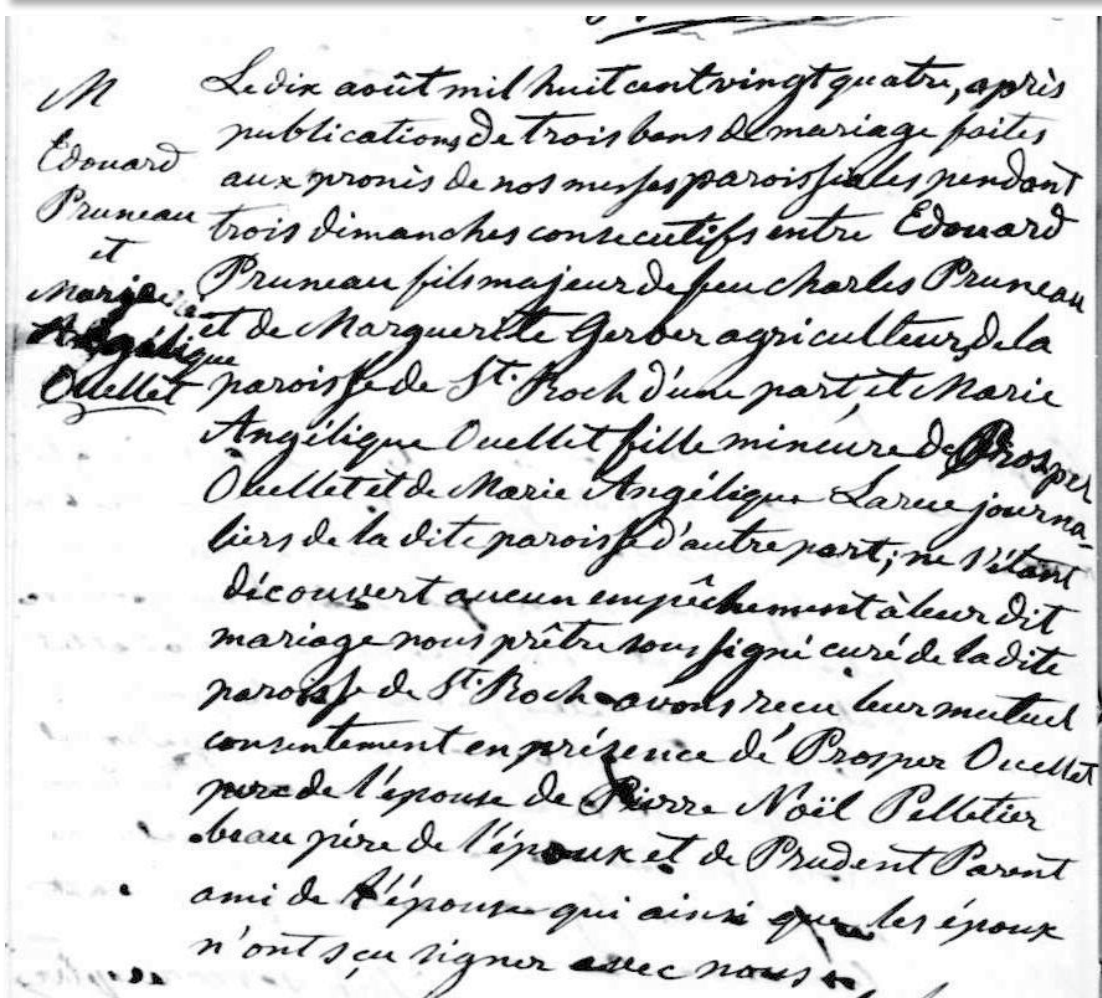 M
Edouard
Pruneau
et
Marie
Angélique
Ouellet
Le dix août mil huit cent vingt quatre, après
publications de trois bans de mariage faites
aux pronès de nos messes paroissiales pendant
trois dimanches consecutifs entre Edouard
Pruneau fils majeur de feu Charles Pruneau
et de Marguerite Gerber agriculteurs de la
paroisse de St. Roch d'une part et Marie
Angélique Ouellet fille mineure de Prosper
Ouellet et de Marie Angélique Larue journa-
liers de la dite paroisse d'autre part; ne s'étant
découvert aucun empêchement à leur dit
mariage nous prêtre soussigné curé de la dite
paroisse de St. Roch avons recu leur mutuel
consentement en présence de Prosper Ouellet
père de l'épouse de Pierre Noël Pelletier
beau père de l'époux et de Prudent Parent
ami de l'épouse qui ainsi que les époux
n'ont sçu signer avec nous